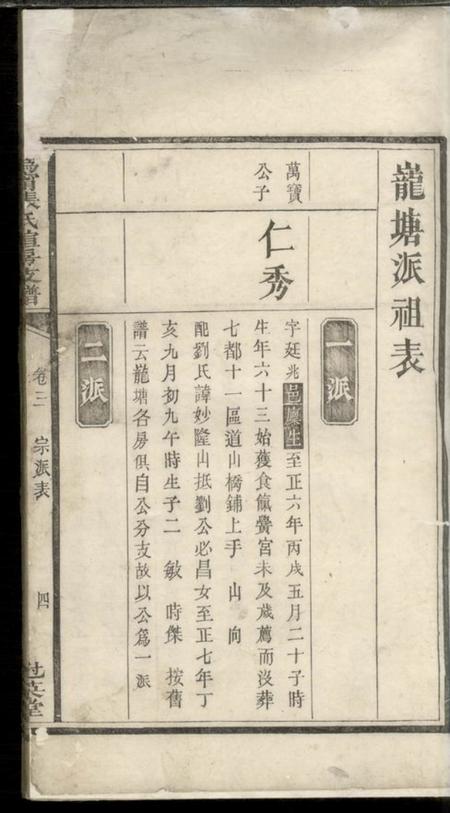 巃塘派祖表
一派
萬寶
公子
仁秀
字廷兆邑廩生至正六年丙戌五月二十子時
生年六十三始獲食餼黌宮未及歲薦而沒葬
七都十一區道山橋鋪上手 山 向
配劉氏諱妙隆山抵劉公必昌女至正七年丁
亥九月初九午時生子二 敏 時傑 按舊
譜云龍塘各房俱自公分支故以公爲一派
二派
張氏 房支譜
卷三 宗派表 四